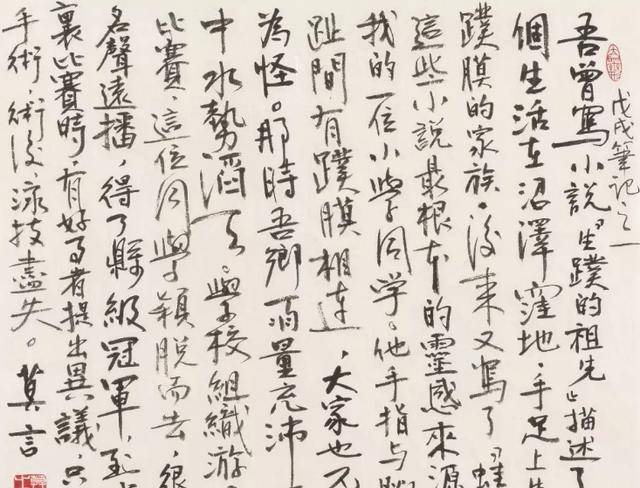 戊戌筆記之一
吾曾寫小說『生蹼的祖先』描述了
個生活在沼澤窪地，手足上生
蹼膜的家族。後来又寫了
這些小說最根本的靈感來源
我的一位小學同学。他手指与脚
趾間有蹼膜相連，大家也不
為怪。那時吾鄉雨量充沛
中水勢滔天。學校組織游
比賽，這位同學穎脱而去，很
名聲遠播，得了縣級冠軍，到
裏比賽時，有好事者提出異議，只
手術，術後，泳技盡失。莫言